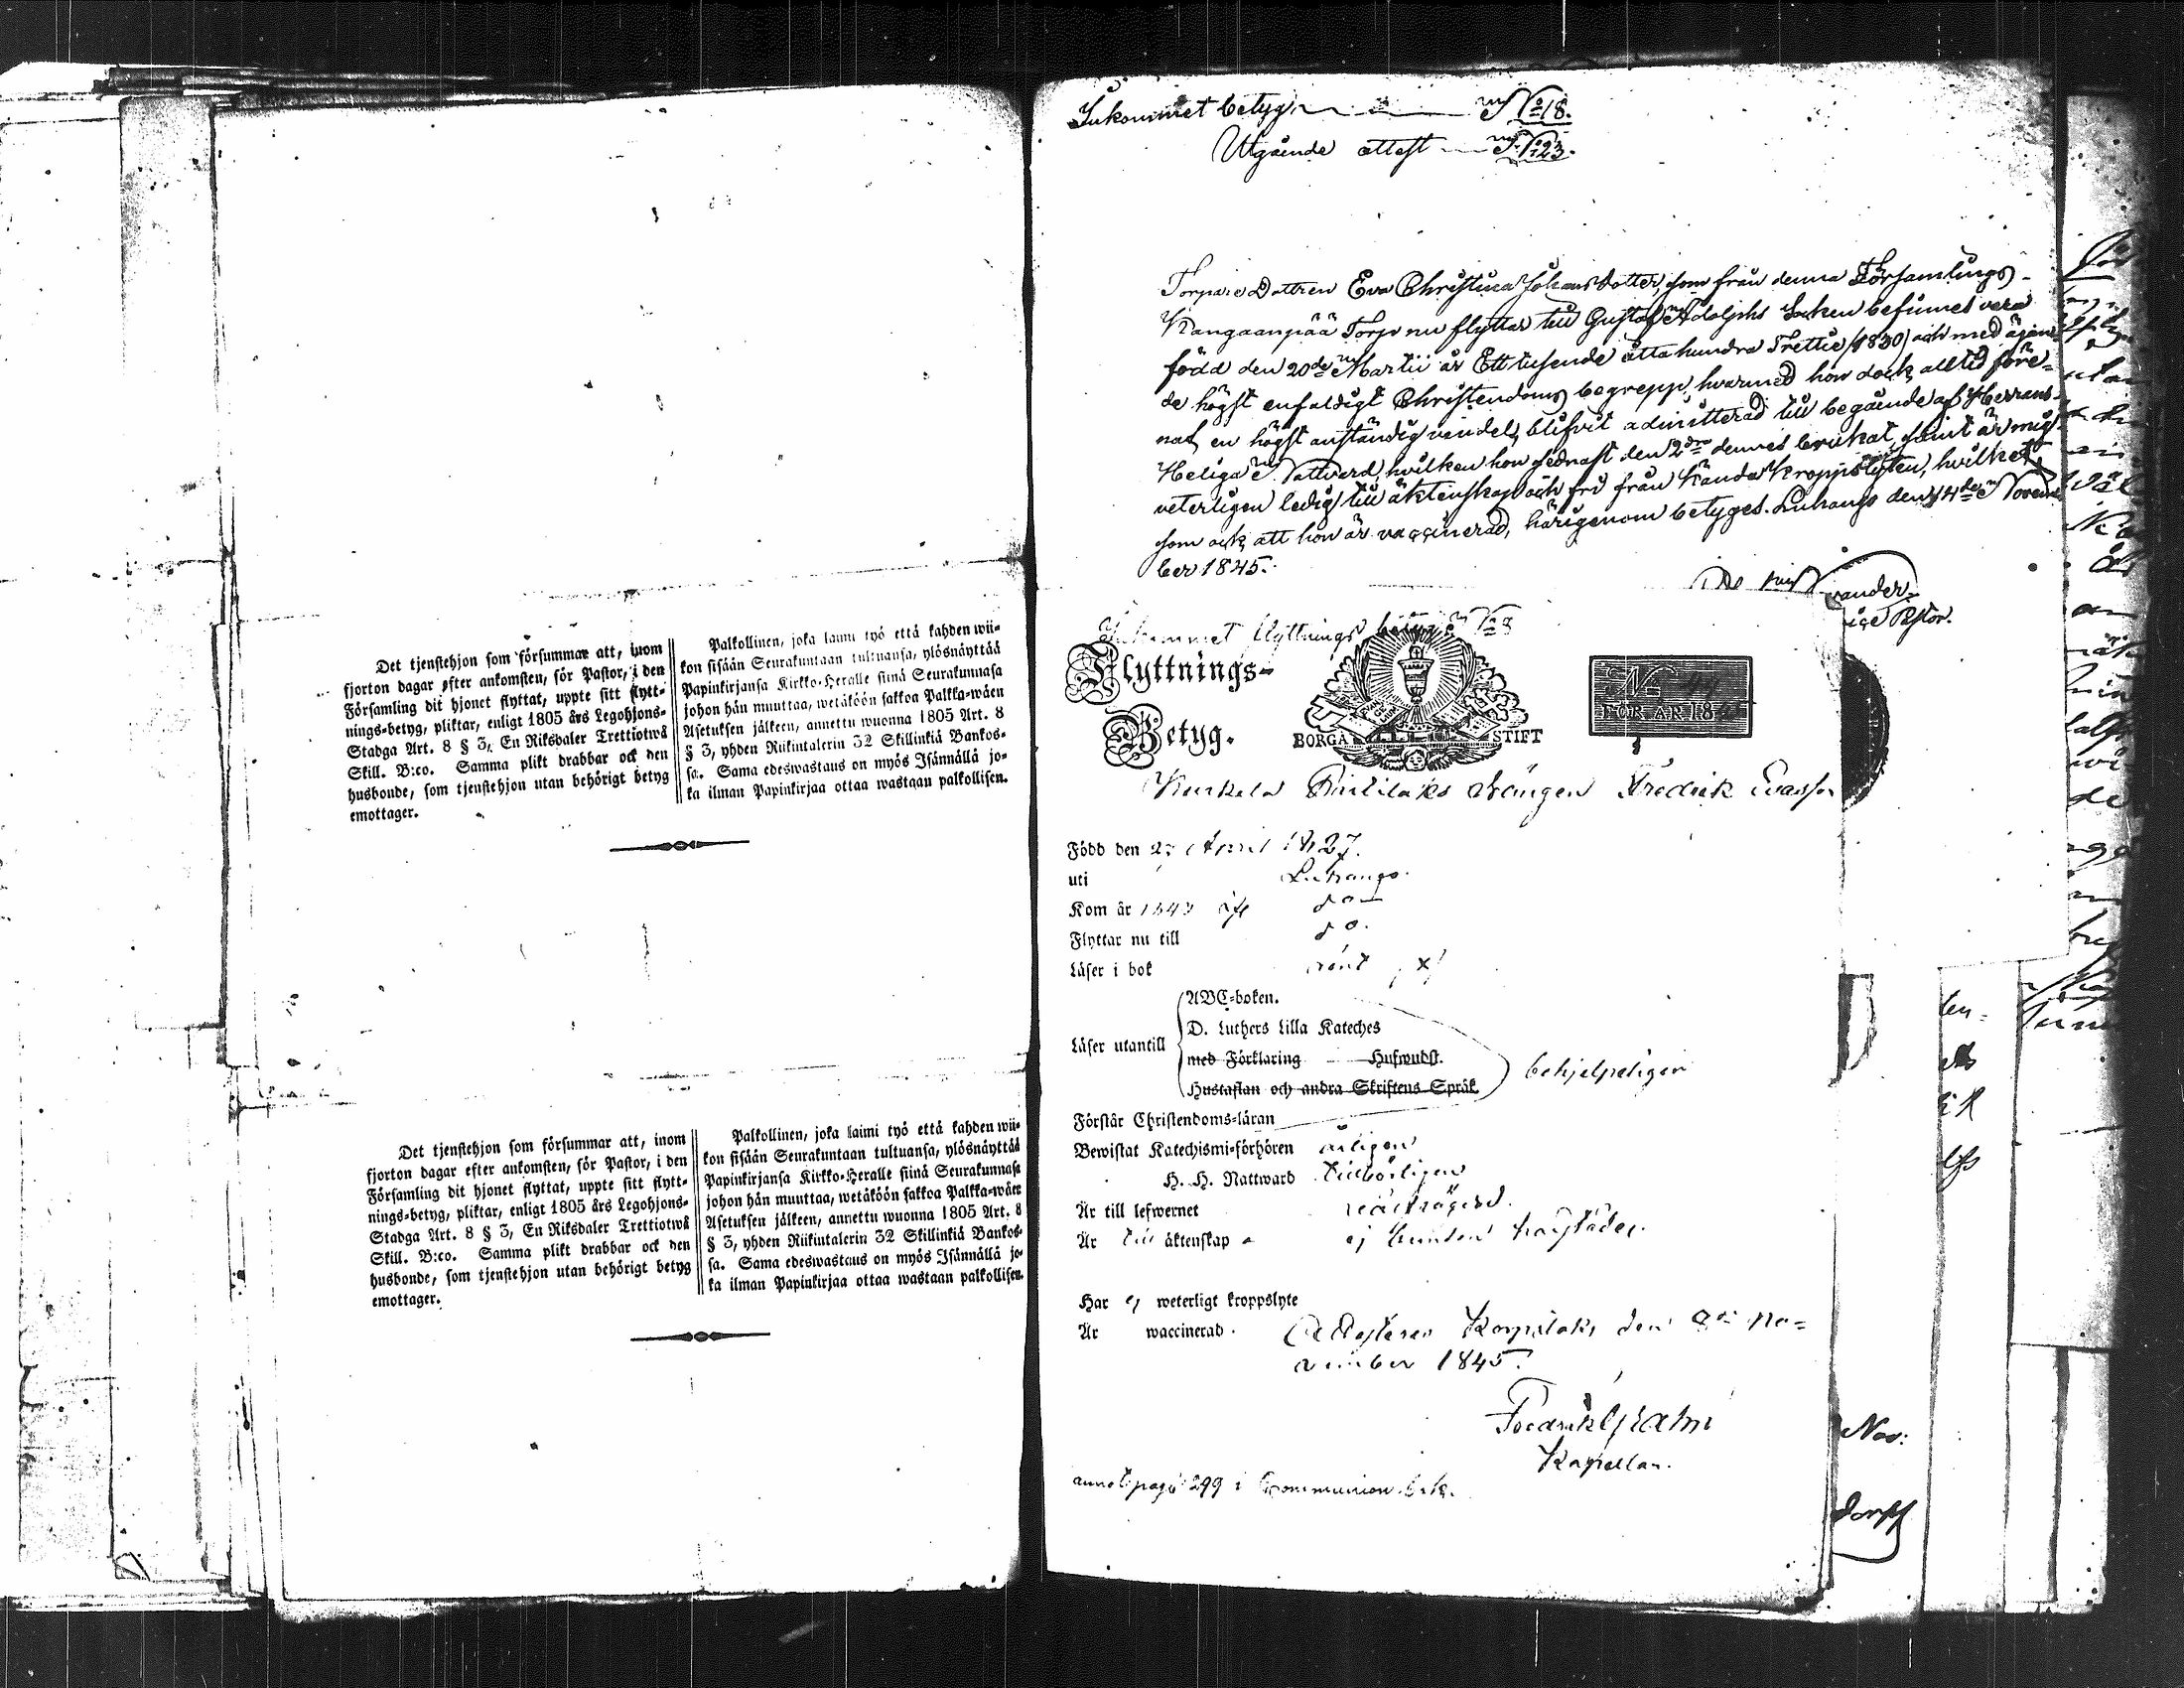 Det tjenstehjon som försummar att, inom
fjorton dagar efter ankomsten, för Pastor, i den
Församling dit hjonet flyttat, uppte sitt flytt-
nings-betyg, pliktar, enligt 1805 års Legohjons-
Stadga Art. 8 § 3, En Riksdaler Trettiotwå
Skill. B:co. Samma plikt drabbar ock den
husbonde, som tjenstehjon utan behörigt betyg
emottager.
Palkollinen, joka laimi työ että kahden wii-
kon sisään Seurakuntaan tultuansa, ylösnäyttää
Papinkirjansa Kirkko-Heralle siinä Seurakunnasa
johon hän muuttaa, wetäköön sakkoa Palkka-wäen
Asetuksen jälkeen, annettu wuonna 1805 Art. 8
§ 3, yhden Riikintalerin 32 Skillinkiä Bankos-
sa. Sama edeswastaus on myös Isännällä jo-
ka ilman Papinkirjaa ottaa wastaan palkollisen.
Det tjenstehjon som försummar att, inom
fjorton dagar efter ankomsten, för Pastor, i den
Församling dit hjonet flyttat, uppte sitt flytt-
nings-betyg, pliktar, enligt 1805 års Legohjons-
Stadga Art. 8 § 3, En Riksdaler Trettiotwå
Skill. B:co. Samma plikt drabbar ock den
husbonde, som tjenstehjon utan behörigt betyg
emottager.
Palkollinen, joka laimi työ että kahden wii-
kon sisään Seurakuntaan tultuansa, ylösnäyttää
Papinkirjansa Kirkko-Heralle siinä Seurakunnasa
johon hän muuttaa, wetäköön sakkoa Palkka-wäen
Asetuksen jälkeen, annettu wuonna 1805 Art. 8
§ 3, yhden Riikintalerin 32 Skillinkiä Bankos-
sa. Sama edeswastaus on myös Isännällä jo-
ka ilman Papinkirjaa ottaa wastaan palkollisen.
Inkommet betyg N:o 18.
Utgående attest N:o 23.
Torpare Dottren Eva Christina Johansdotter, som från denna Församlings
Kangaanpää Torp nu flyttar till Gustaf Adolphs Socken befinnes vara
född den 20de Martii år Ett tusende åtta hundra Trettie (1830) och med ägan-
de högst enfaldigt Christendoms begrepp, hvarmed hon dock alltid före-
nat en högst anständig vandel, blifvit admitterad till begående af Herrans
Heliga Nattvard, hvilken hon sednast den 2dre dennes brukat, samt är mig
veterligen ledig till äktenskap och fri från kända kroppslyten, hvilket,
som ock att hon är vaccinerad, härigenom betyges. Luhango den 14de Novem-
ber 1845.
Inkommet flyttnings betyg N:o 8
Flyttnings-
Betyg.
BORGÅ STIFT
N:o
FÖR ÅR 18
Fredrik
Född den 27 April 1827.
uti Luhango.
Kom år 1843 do
Flyttar nu till do.
Läser i bok
Läser utantill
ABC-boken.
D. Luthers Lilla Kateches
med Förklaring Hufwudst.
Hustaflan och andra Skriftens Språk
behjelpeligen
Förstår Christendoms-läran
Bewistat Katechismi-förhören årligen
H. H. Nattward tillbörligen
Är till lefwernet
Är till äktenskap ej bunden
Har ej weterligt kroppslyte
Är waccinerad.
Korpilaks den No-
vember 1845.
Fredrik
Kapellan.
annot: pag: 299 i Communion bok.
Nov: